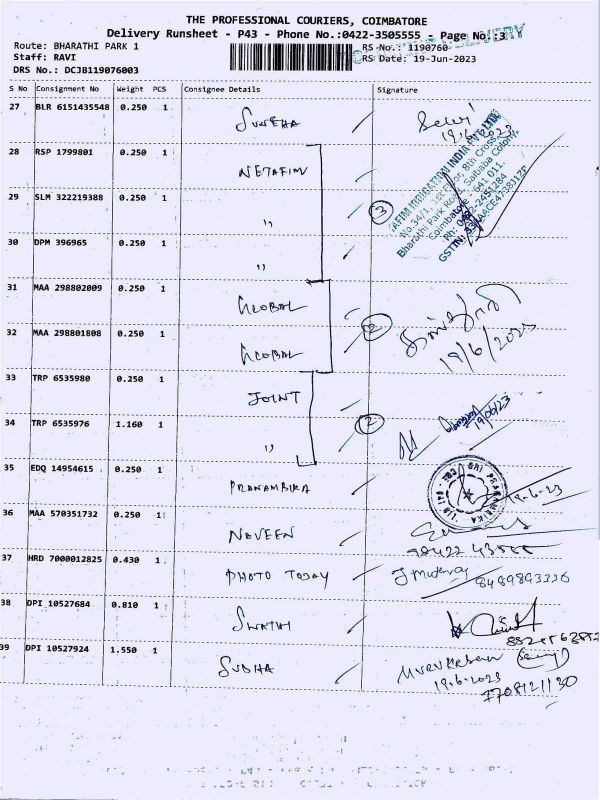 THE PROFESSIONAL COURIERS, COIMBATORE
Delivery Runsheet - P43 - Phone No.:0422-3505555 - Page No.:3
Route: BHARATHI PARK 1
RS No.: 1190760
Staff: RAVI
RS Date: 19-Jun-2023
DRS No.: DCJB119076003
S No Consignment No Weight PCS Consignee Details Signature
27 BLR 6151435548 0.250 1 SUNEHA
19/6/2023
28 RSP 1799801 0.250 1 NETAFIM
29 SLM 322219388 0.250 1 "
3
IRRIGATION INDIA PVT LTD
No.34/1, 1st Floor, 8th Cross,
Bharathi Park Road, Saibaba Colony,
Coimbatore - 641 011.
Ph: 0422-2451284
30 DPM 396965 0.250 1 "
31 MAA 298802009 0.250 1 GLOBAL
2
19/6/2023
32 MAA 298801808 0.250 1 GLOBAL
33 TRP 6535980 0.250 1 JOINT
2
19/06/23
34 TRP 6535976 1.160 1 "
35 EDQ 14954615 0.250 1 PRANAMBIKA
19-6-23
36 MAA 570351732 0.250 1 NAVEEN
37 HRD 7000012825 0.430 1 PHOTO TODAY
38 DPI 10527684 0.810 1 SWATHI
39 DPI 10527924 1.550 1 SUBHA
19.6.2023
7708121130